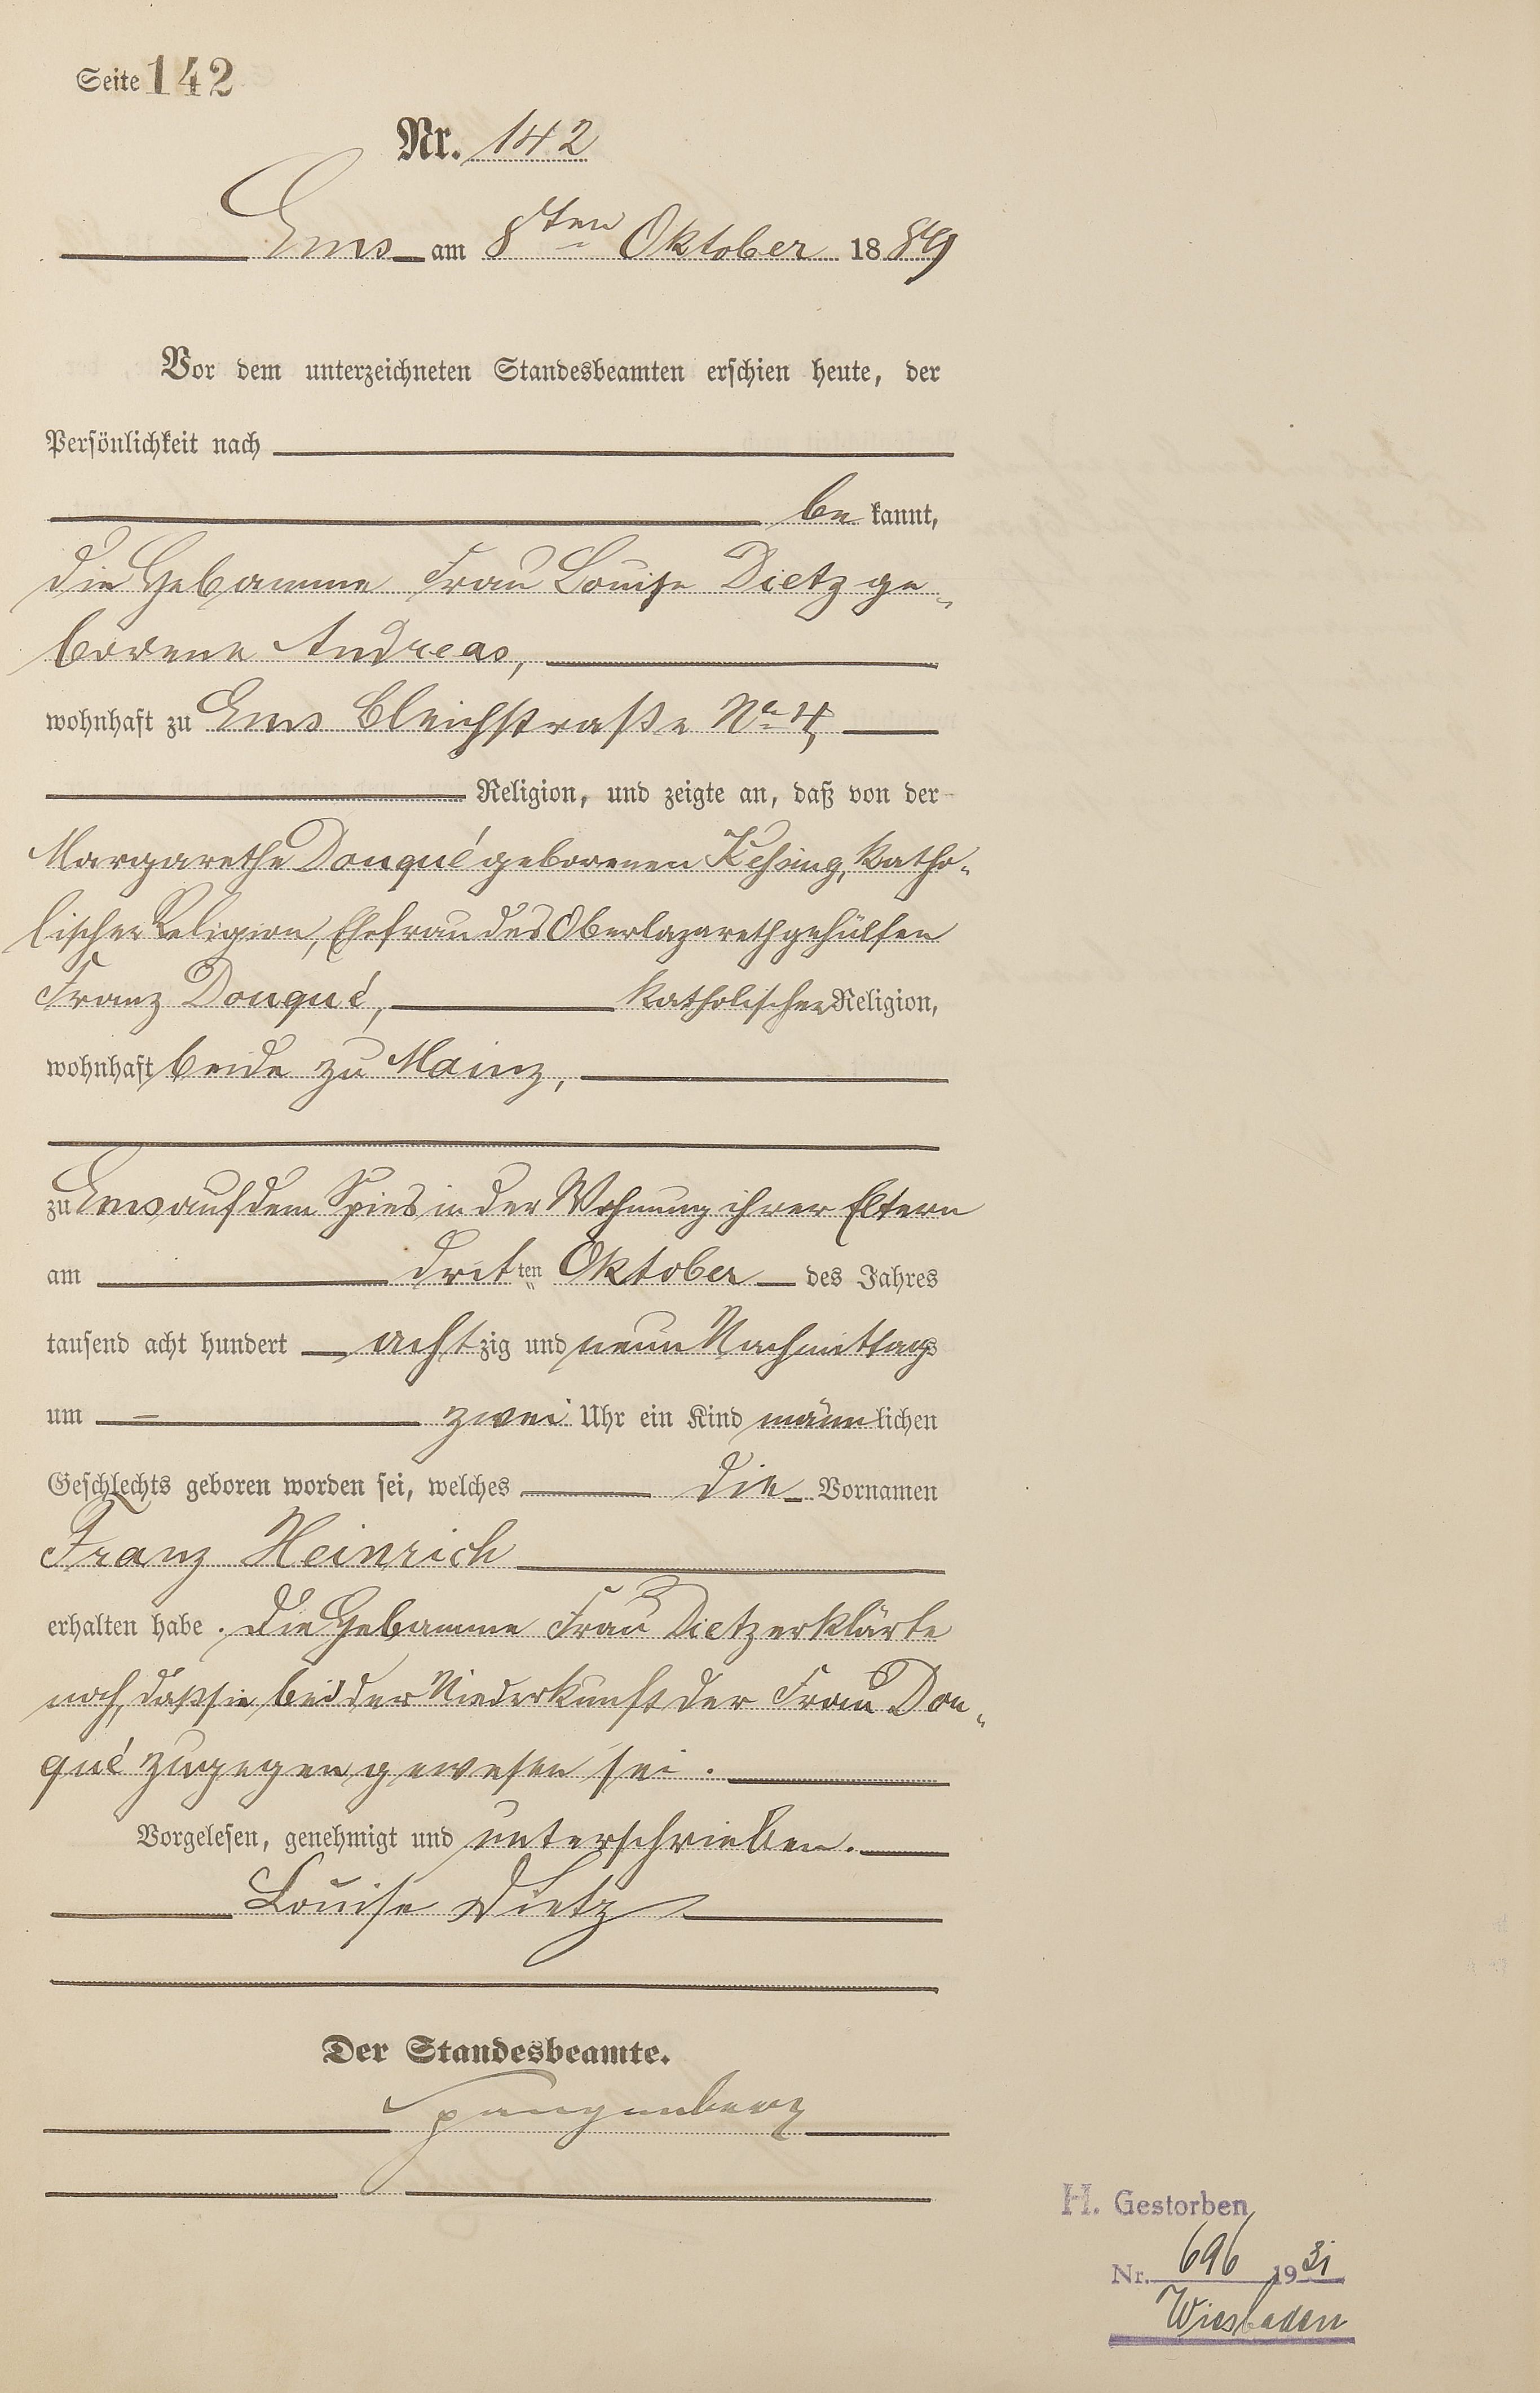 Seite 142
Nr. 142
Ems am 8ten Oktober 1889
Vor dem unterzeichneten Standesbeamten erschien heute, der
Persönlichkeit nach
bekannt,
die Hebamme Frau Louise Dietz ge-
borene Andreas,
wohnhaft zu Ems Bleichstraße No 4,
Religion, und zeigte an, daß von der
Margarethe Donqué geborenen Kissing, katho-
lischer Religion, Ehefrau des Oberlazarethgehülfen
Franz Donqué, katholischer Religion,
wohnhaft beide zu Mainz,
zu Ems auf dem Spies in der Wohnung ihrer Eltern
am dritten Oktober des Jahres
tausend acht hundert achtzig und neun Nachmittags
um zwei Uhr ein Kind männlichen
Geschlechts geboren worden sei, welches die Vornamen
Franz Heinrich
erhalten habe. Die Hebamme Frau Dietz erklärte
noch, daß sie bei der Niederkunft der Frau Don-
qué zugegen gewesen sei.
Vorgelesen, genehmigt und unterschrieben.
Louise Dietz
Der Standesbeamte.
Spangenberg
H. Gestorben
Nr. 696 1931
Wiesbaden